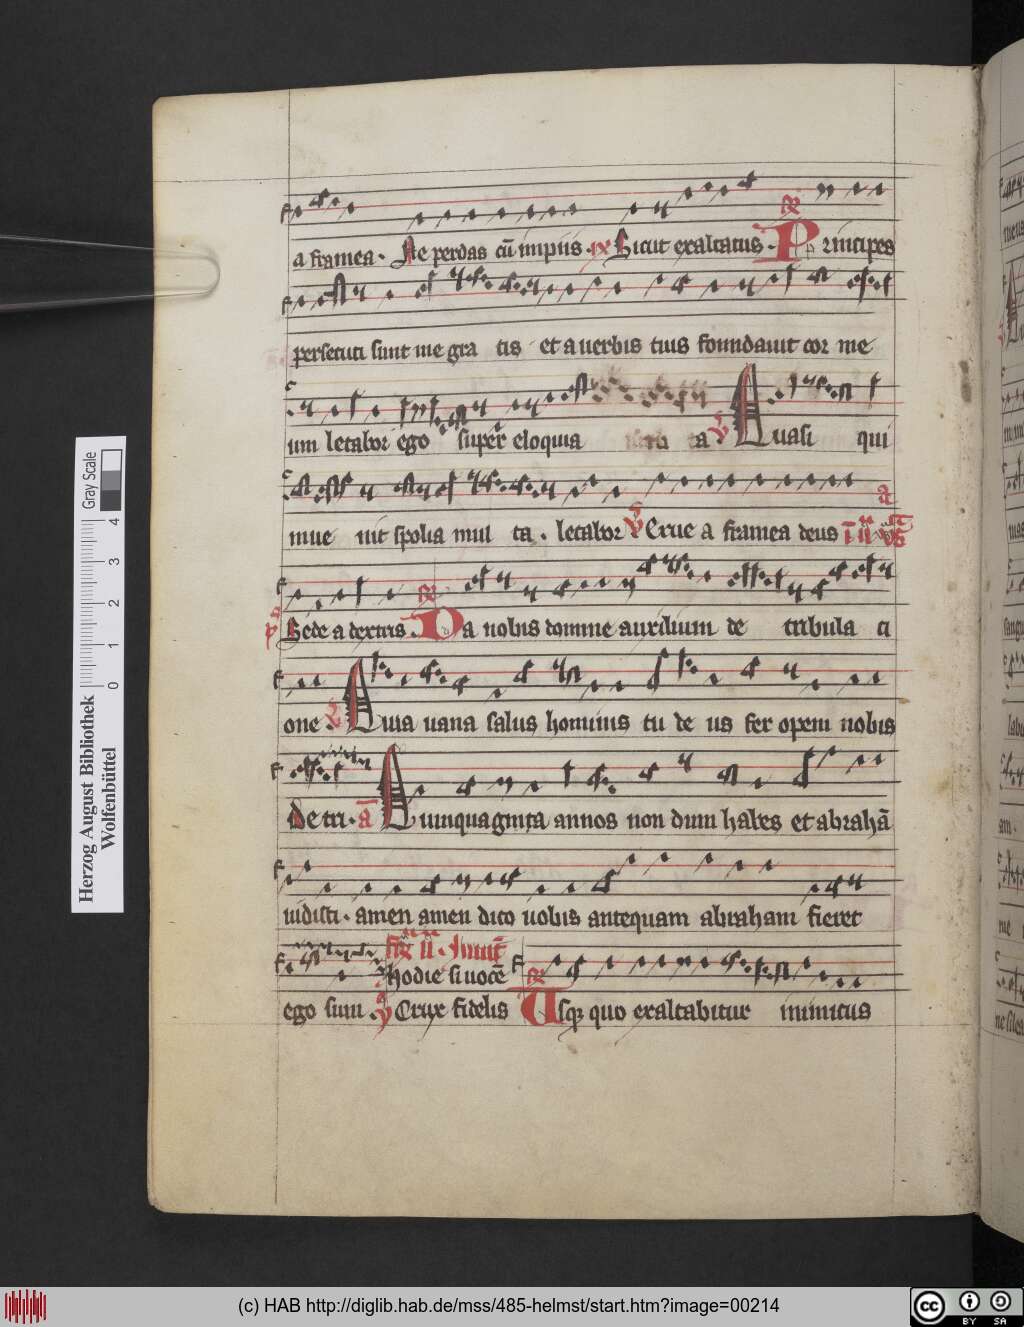 a framea. Ne perdas cū impiis. ix Sicut exaltatus. Principes
persecuti sunt me gra tis et a uerbis tuis formidauit cor me
um letabor ego super eloquia ta Quasi qui
inue nit spolia mul ta. letabor Erue a framea deus
Sede a dextris. Da nobis domine auxilium de tribula ti
one Quia uana salus hominis tu de us fer opem nobis
De tri. a Quinquaginta annos non dum habes et abrahā
uidisti. amen amen dico uobis antequam abraham fieret
hodie si uocē
ego sum Crux fidelis Usqz quo exaltabitur inimicus
Herzog August Bibliothek
Wolfenbüttel
0 1 2 3 4
Gray Scale
(c) HAB http://diglib.hab.de/mss/485-helmst/start.htm?image=00214
cc BY SA